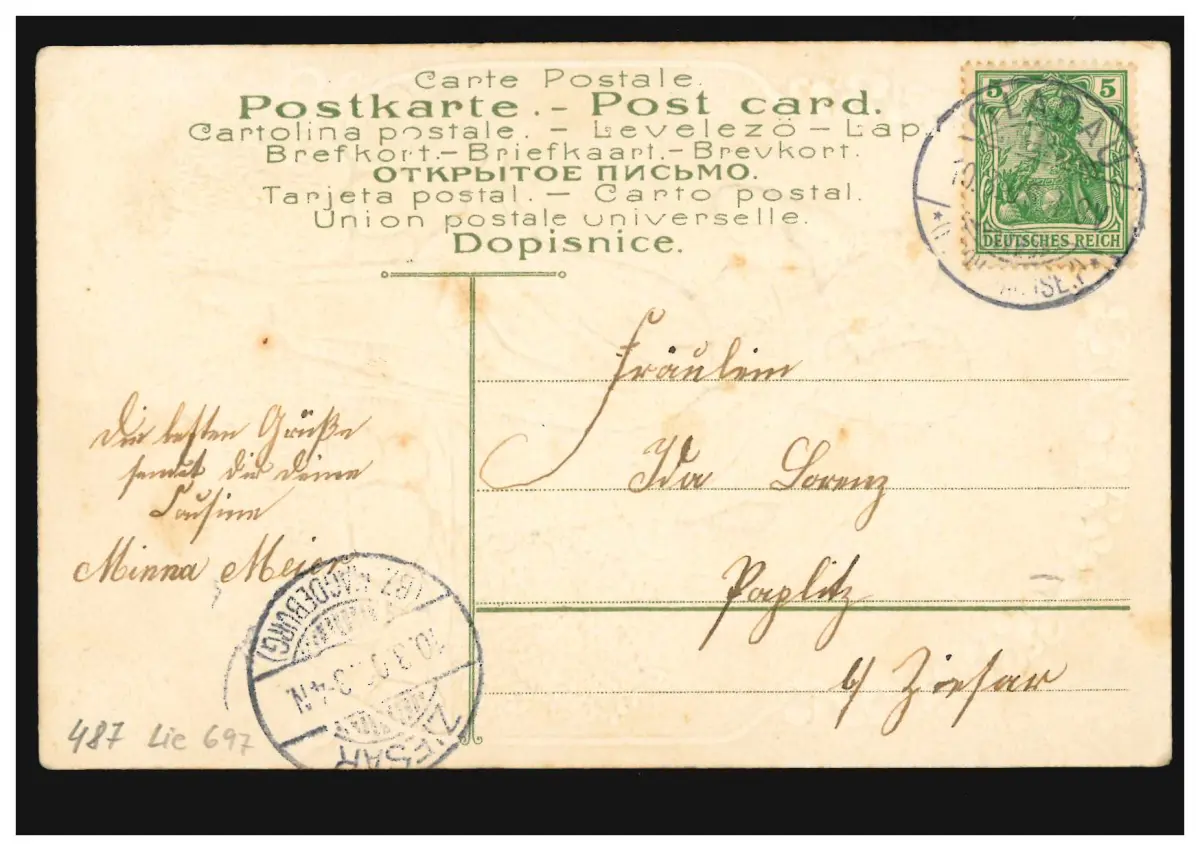 Carte Postale.
Postkarte.- Post card.
Cartolina postale. – Levelezö – Lap.
Brefkort.– Briefkaart.– Brevkort.
ОТКРЫТОЕ ПИСЬМО.
Tarjeta postal. – Carto postal.
Union postale universelle.
Dopisnice.
5 5
DEUTSCHES REICH
GLADAU
Fräulein
Ida Lorenz
Paplitz
b/ Ziesar
Die besten Grüße
sendet dir deine
Cousine
Minna Meier
(BZ. MAGDEBURG)
10.3.0 3-4N
ZIESAR
487 Lie 697